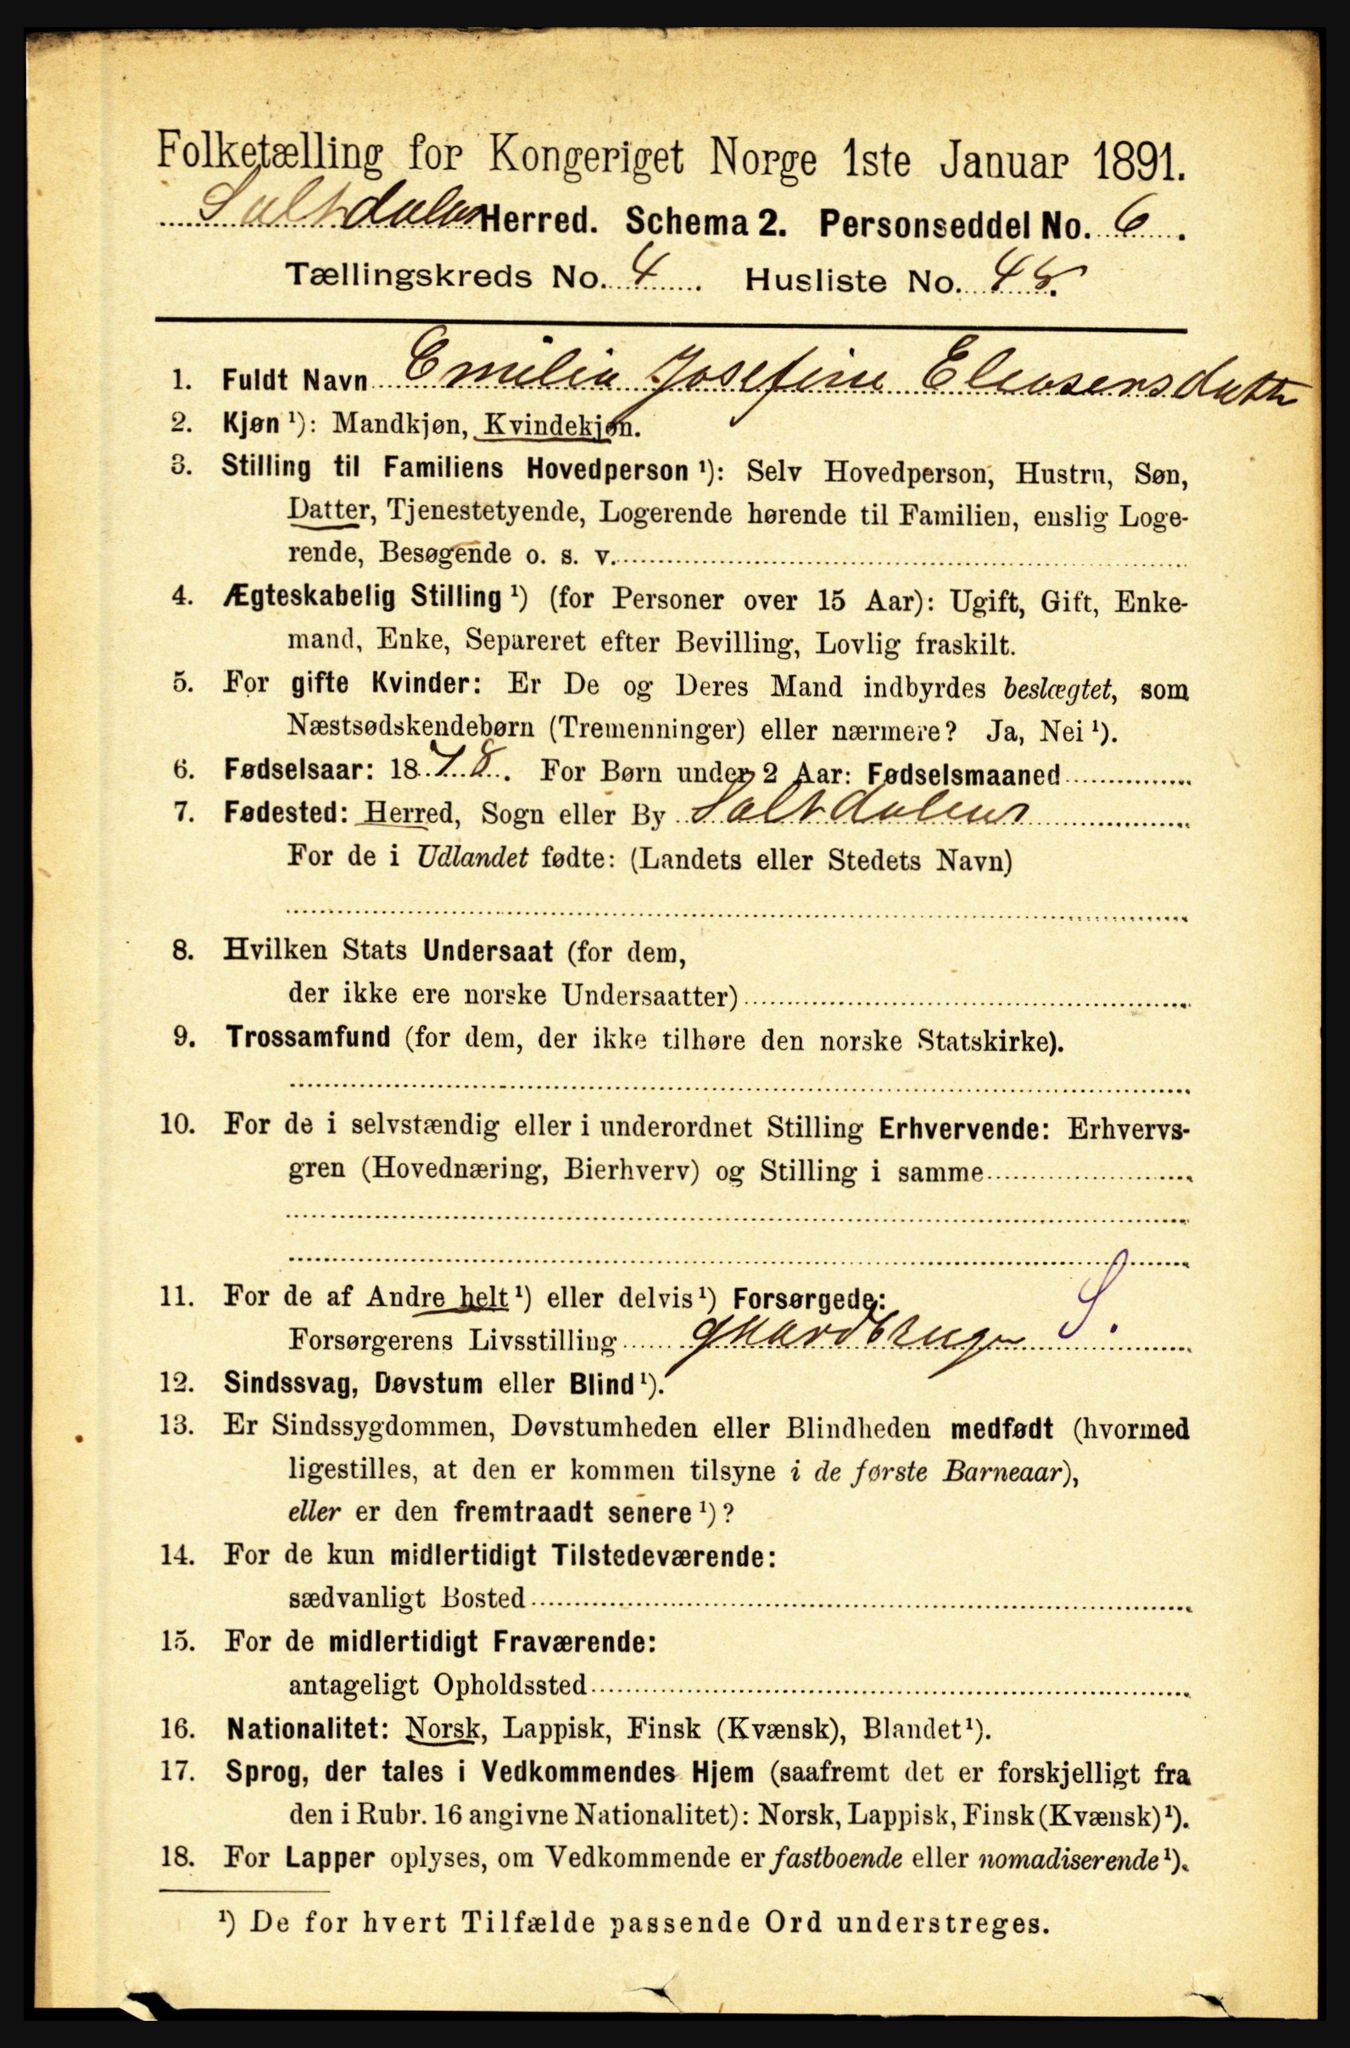 Folketælling for Kongeriget Norge 1ste Januar 1891.
Saltdalen Herred. Schema 2. Personseddel No. 6.
Tællingskreds No. 4. Husliste No. 48.
1. Fuldt Navn Emilie Josefine Eleasersdatter
2. Kjøn ¹): Mandkjøn, Kvindekjøn.
3. Stilling til Familiens Hovedperson ¹): Selv Hovedperson, Hustru, Søn,
Datter, Tjenestetyende, Logerende hørende til Familien, enslig Loge-
rende, Besøgende o. s. v.
4. Ægteskabelig Stilling ¹) (for Personer over 15 Aar): Ugift, Gift, Enke-
mand, Enke, Separeret efter Bevilling, Lovlig fraskilt.
5. For gifte Kvinder: Er De og Deres Mand indbyrdes beslægtet, som
Næstsødskendebørn (Tremenninger) eller nærmere? Ja, Nei ¹).
6. Fødselsaar: 1878. For Børn under 2 Aar: Fødselsmaaned
7. Fødested: Herred, Sogn eller By Saltdalen
For de i Udlandet fødte: (Landets eller Stedets Navn)
8. Hvilken Stats Undersaat (for dem,
der ikke ere norske Undersaatter)
9. Trossamfund (for dem, der ikke tilhøre den norske Statskirke).
10. For de i selvstændig eller i underordnet Stilling Erhvervende: Erhvervs-
gren (Hovednæring, Bierhverv) og Stilling i samme
11. For de af Andre helt ¹) eller delvis ¹) Forsørgede:
Forsørgerens Livsstilling gaardbruger S.
12. Sindssvag, Døvstum eller Blind ¹).
13. Er Sindssygdommen, Døvstumheden eller Blindheden medfødt (hvormed
ligestilles, at den er kommen tilsyne i de første Barneaar),
eller er den fremtraadt senere ¹)?
14. For de kun midlertidigt Tilstedeværende:
sædvanligt Bosted
15. For de midlertidigt Fraværende:
antageligt Opholdssted
16. Nationalitet: Norsk, Lappisk, Finsk (Kvænsk), Blandet ¹).
17. Sprog, der tales i Vedkommendes Hjem (saafremt det er forskjelligt fra
den i Rubr. 16 angivne Nationalitet): Norsk, Lappisk, Finsk (Kvænsk) ¹).
18. For Lapper oplyses, om Vedkommende er fastboende eller nomadiserende ¹).
¹) De for hvert Tilfælde passende Ord understreges.